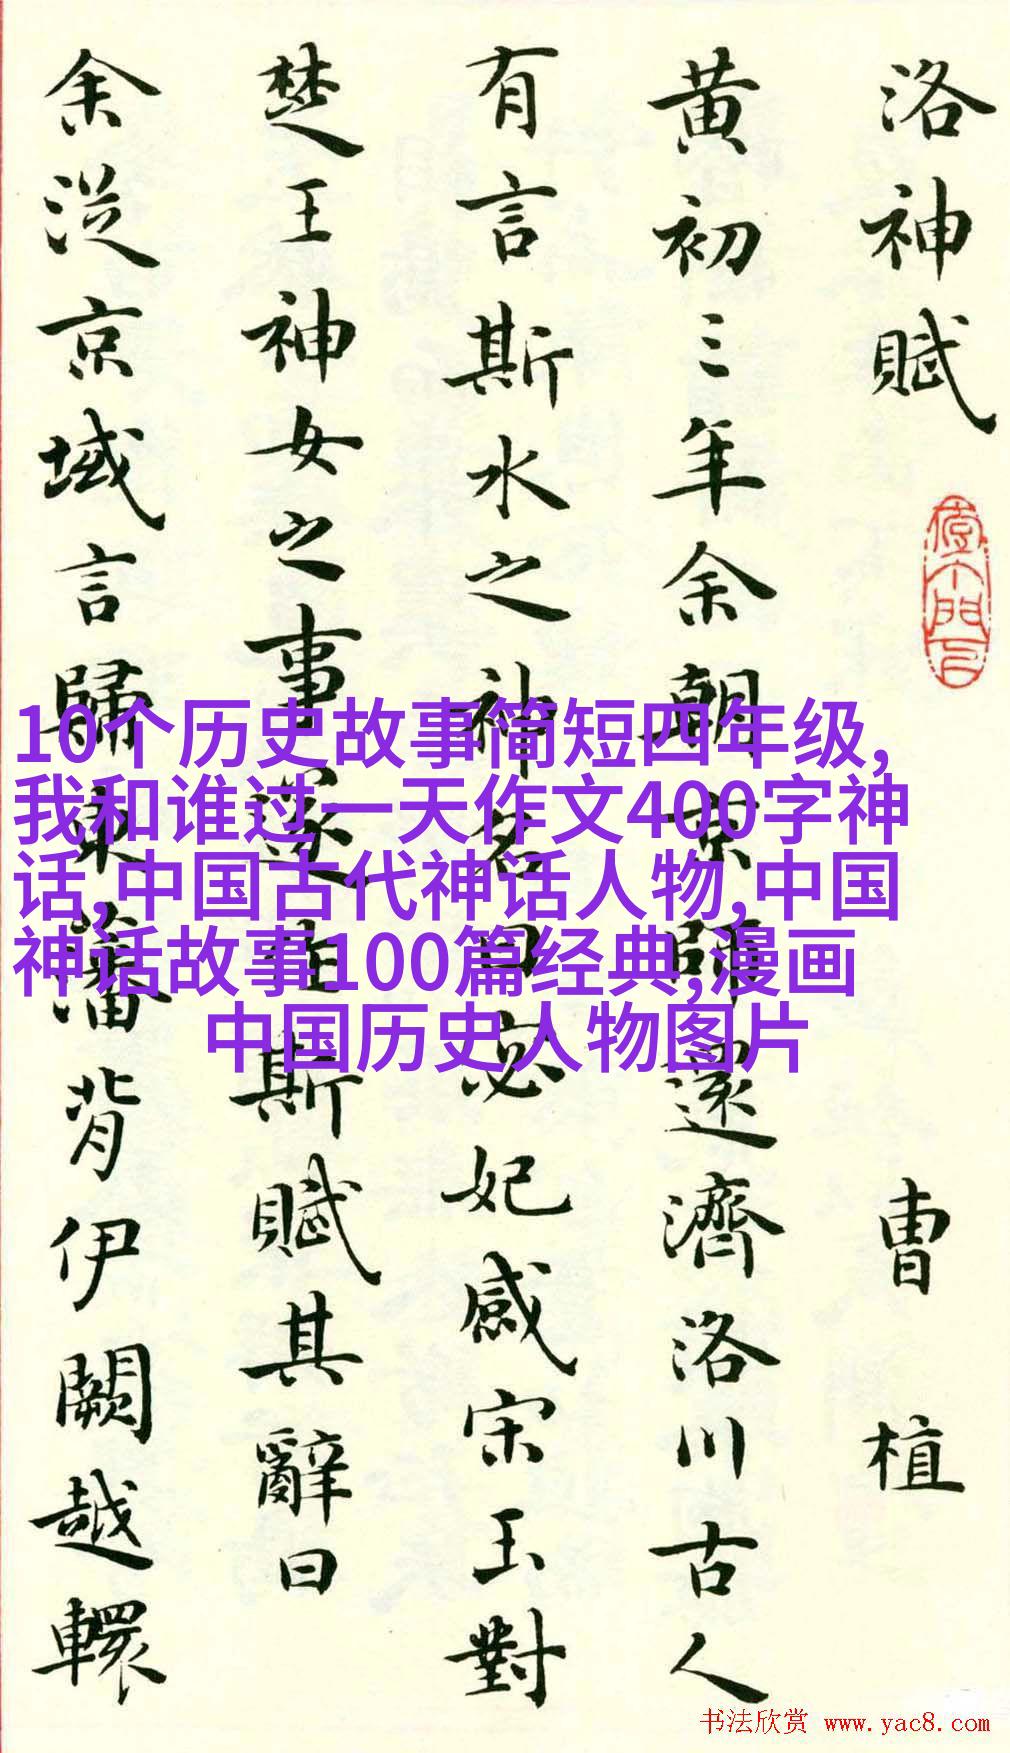 洛神賦 曹植
黄初三年余朝京師還濟洛川古人
有言斯水之神名曰宓妃感宋玉對
楚王神女之事遂作斯賦其辭曰
余從京域言歸東藩背伊闕越轘
10个历史故事简短四年级,
我和谁过一天作文400字神
话,中国古代神话人物,中国
神话故事100篇经典,漫画
中国历史人物图片
书法欣赏 www.yac8.com